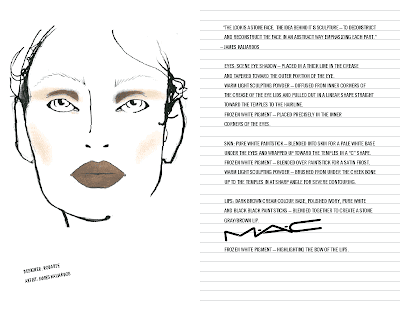 "THE LOOK IS A STONE FACE. THE IDEA BEHIND IT IS SCULPTURE – TO DECONSTRUCT
AND RECONSTRUCT THE FACE IN AN ABSTRACT WAY EMPHASIZING EACH PART."
– JAMES KALIARDOS
EYES: SCENE EYE SHADOW – PLACED IN A THICK LINE IN THE CREASE
AND TAPERED TOWARD THE OUTER PORTION OF THE EYE.
WARM LIGHT SCULPTING POWDER – DIFFUSED FROM INNER CORNERS OF
THE CREASE OF THE EYE LIDS AND PULLED OUT IN A LINEAR SHAPE STRAIGHT
TOWARD THE TEMPLES TO THE HAIRLINE.
FROZEN WHITE PIGMENT – PLACED PRECISELY IN THE INNER
CORNERS OF THE EYES.
SKIN: PURE WHITE PAINTSTICK – BLENDED INTO SKIN FOR A PALE WHITE BASE
UNDER THE EYES AND WRAPPED UP TOWARD THE TEMPLES IN A "C" SHAPE.
FROZEN WHITE PIGMENT – BLENDED OVER PAINTSTICK FOR A SATIN FROST.
WARM LIGHT SCULPTING POWDER – BRUSHED FROM UNDER THE CHEEK BONE
UP TO THE TEMPLES IN AT SHARP ANGLE FOR SEVERE CONTOURING.
LIPS: DARK BROWN CREAM COLOUR BASE, POLISHED IVORY, PURE WHITE
AND BLACK BLACK PAINTSTICKS – BLENDED TOGETHER TO CREATE A STONE
GRAY/BROWN LIP.
M·A·C
FROZEN WHITE PIGMENT – HIGHLIGHTING THE BOW OF THE LIPS.
DESIGNER: RODARTE
ARTIST: JAMES KALIARDOS